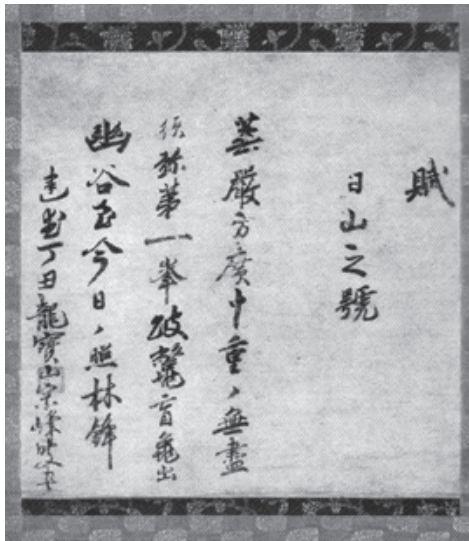 賦
日山之號
華嚴方廣中重々無盡
須弥第一峯驚盲龜出
幽谷至今日々照林鋒
建武丁丑龍寶山宗峰